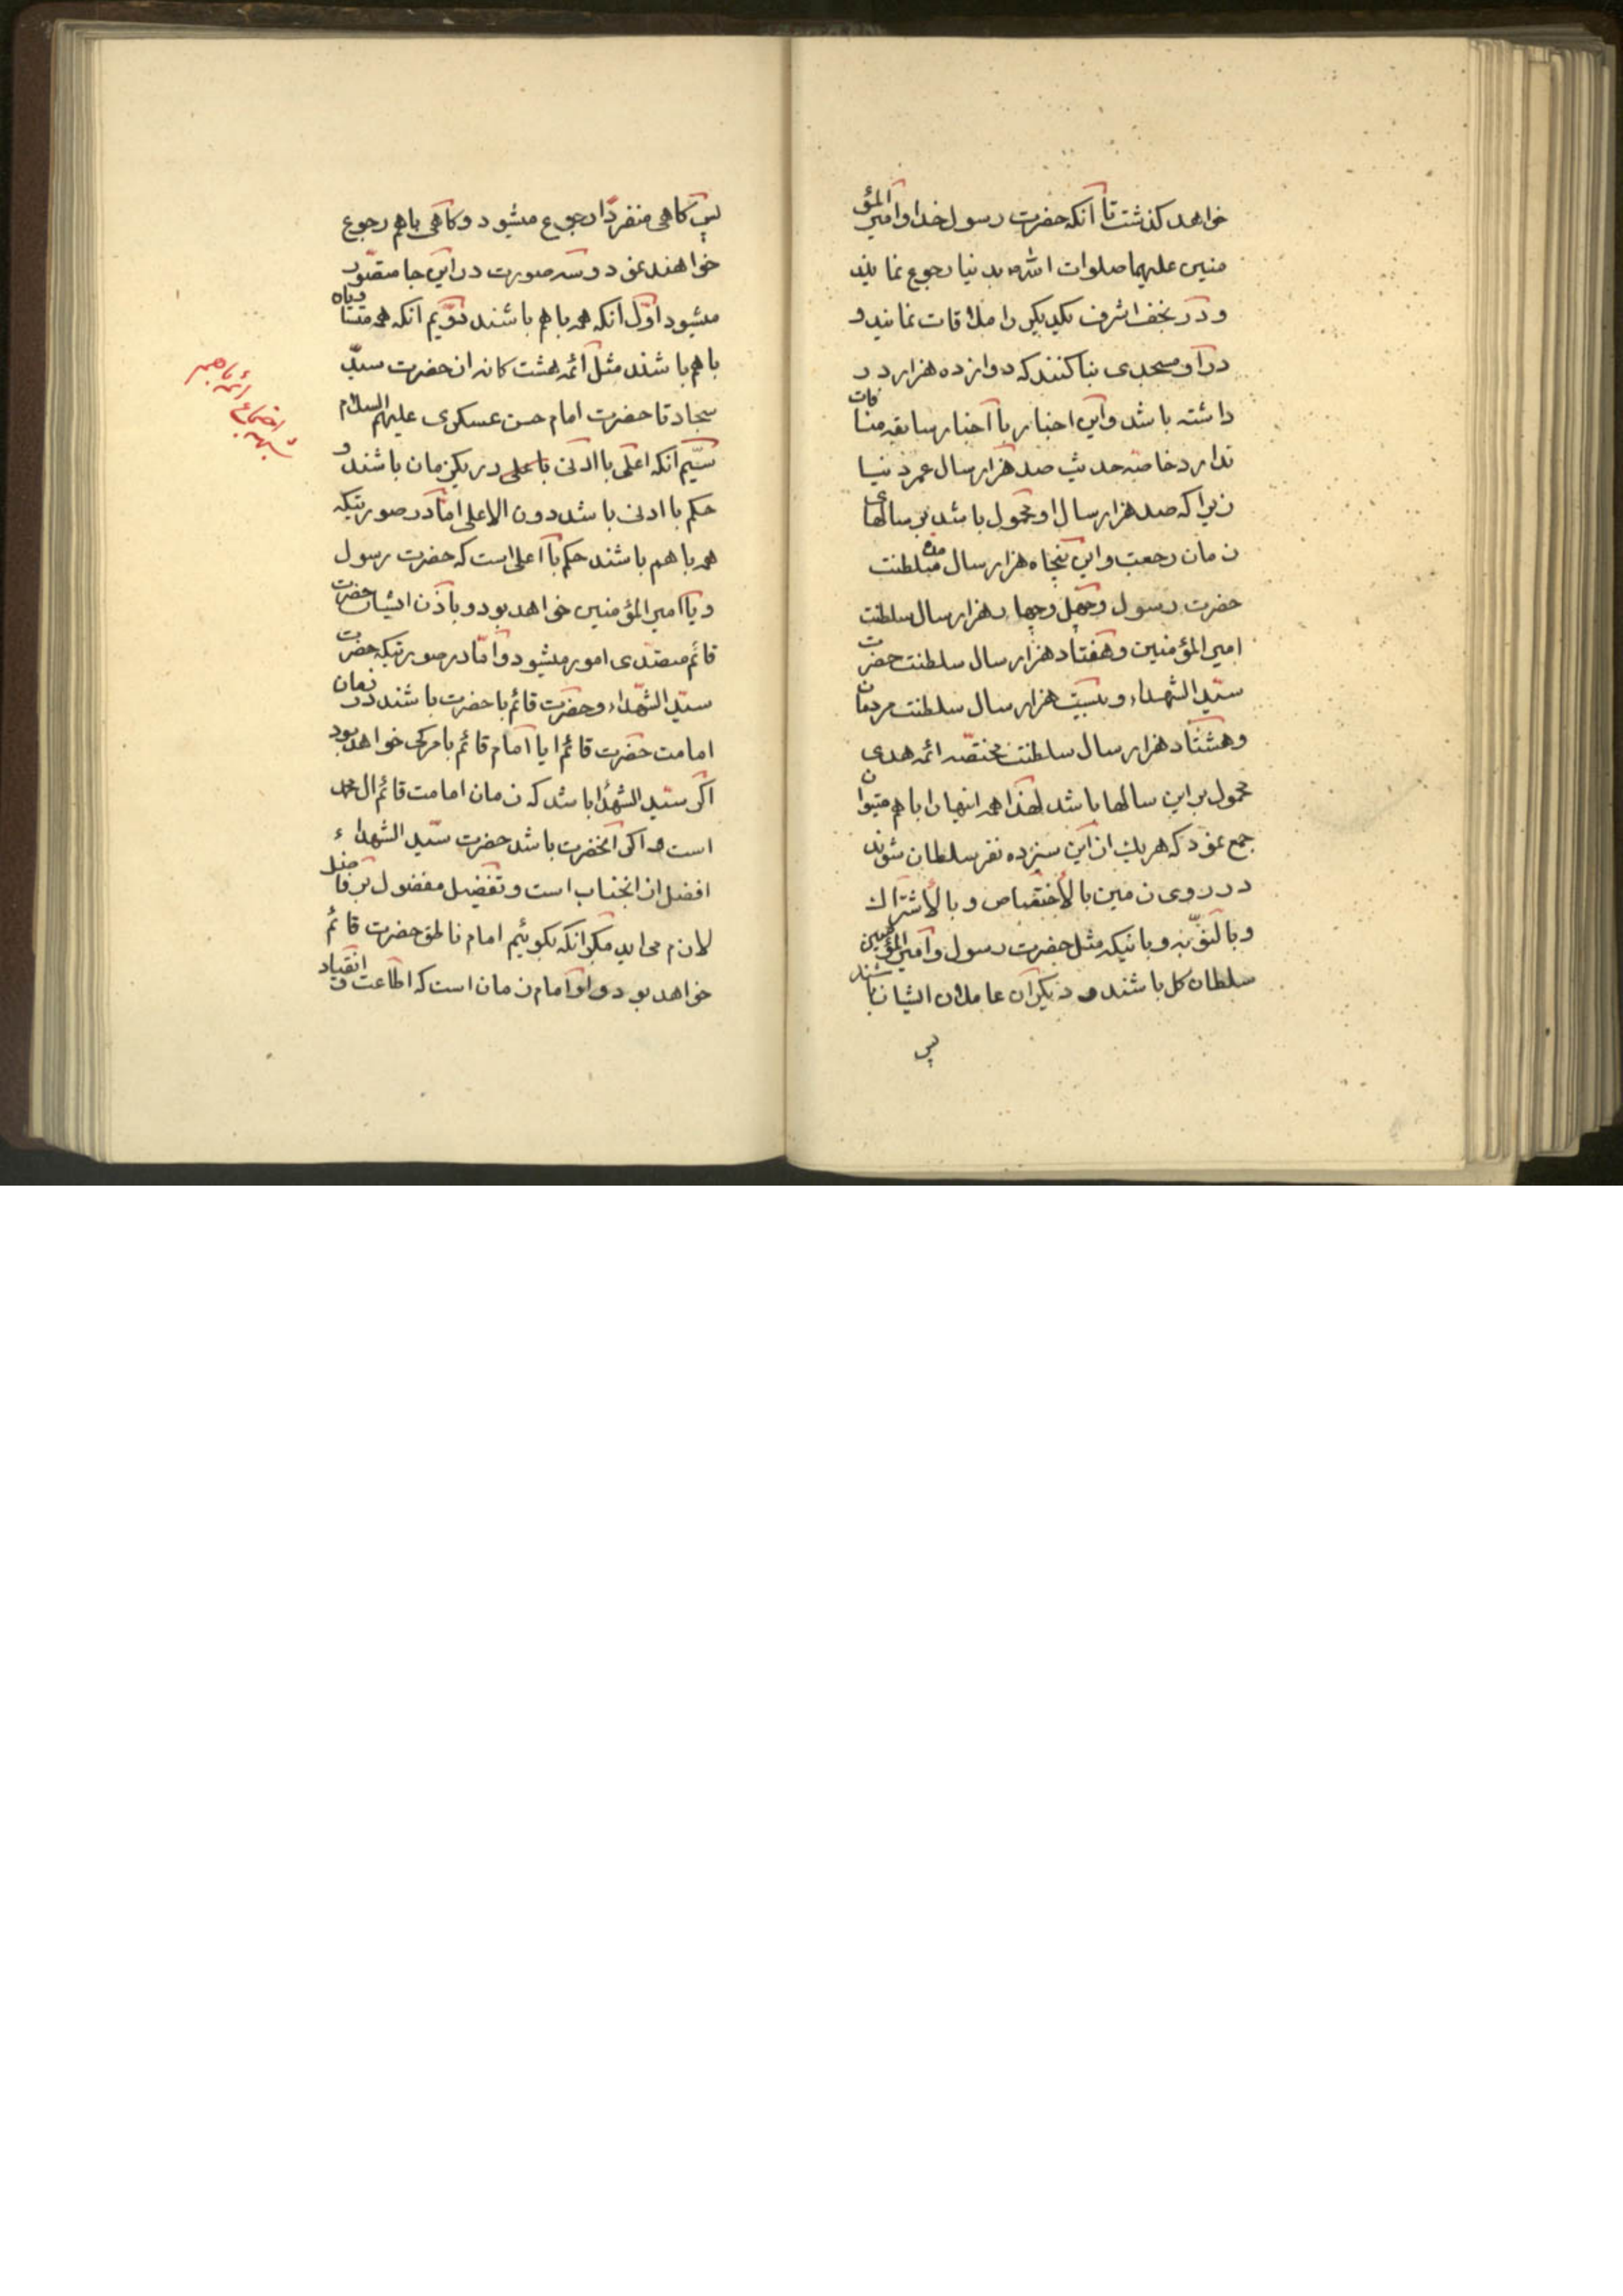 خواهد کذشت تا آنکه حضرت رسول خدا و امیر المؤ
منین علیهما صلوات الله بدنیا رجوع نمایند
و در نجف اشرف یکدیکر را ملاقات نمایند و
در او مسجدی بنا کنند که دوازده هزار در
داشته باشد و این اخبار با اخبار سابقه منافات
ندارد خاصه حدیث صد هزار سال عمر دنیا
زیرا که صد هزار سال او محمول باشد بر سالهای
زمان رجعت و این پنجاه هزار سال مدة سلطنت
حضرت رسول و چهل و چهار هزار سال سلطنت
امیر المؤمنین و هفتاد هزار سال سلطنت حضرت
سیّد الشهداء و بیست هزار سال سلطنت مردمان
و هشتاد هزار سال سلطنت مختصّه ائمه هدی
محمول بر این سالها باشد لهذا همه اینها را با هم میتوان
جمع نمود که هر یک از این سیزده نفر سلطان شوند
در روی زمین بالأختصاص و بالأشتراک
و بالنوّبه و بانیکه مثل حضرت رسول و امیر المؤمنین
سلطان کل باشند و دیکران عاملان ایشان باشند
پس
پس کاهی منفردّا رجوع میشود و کاهی باهم رجوع
خواهند نمود و سه صورت در این جا متصّور
میشود اوّل آنکه همه با هم باشند دوّیم آنکه همه متساویاه
با هم باشند مثل ائمه هشت کانه از حضرت سیّد
سجاد تا حضرت امام حسن عسکری علیهم السلام
سیّم آنکه اعلی با ادنی باعلی در یکزمان باشند و
حکم با ادنی باشد دون الاعلی امّا در صورتیکه
همه با هم باشند حکم با اعلی است که حضرت رسول
و یا امیر المؤمنین خواهد بود و باذن ایشان حضرت
قائم متصّدی امور میشود و امّا در صورتیکه حضرت
سیّد الشهّداء و حضرت قائم با حضرت باشند در زمان
امامت حضرت قائم ایا امام قائم بامر کی خواهد بود
اکر سیّد الشهّدا باشد که زمان امامت قائم ال محمد
است و اکر آنحضرت باشد حضرت سیّد الشهداء
افضل از انجناب است و تفضیل مفضول بر فاضل
لازم می اید مکر انکه بکوئیم امام ناطق حضرت قائم
خواهد بود و او امام زمان است که اطاعت و انقیاد
شبهه
اجتماع
ائمه با هم